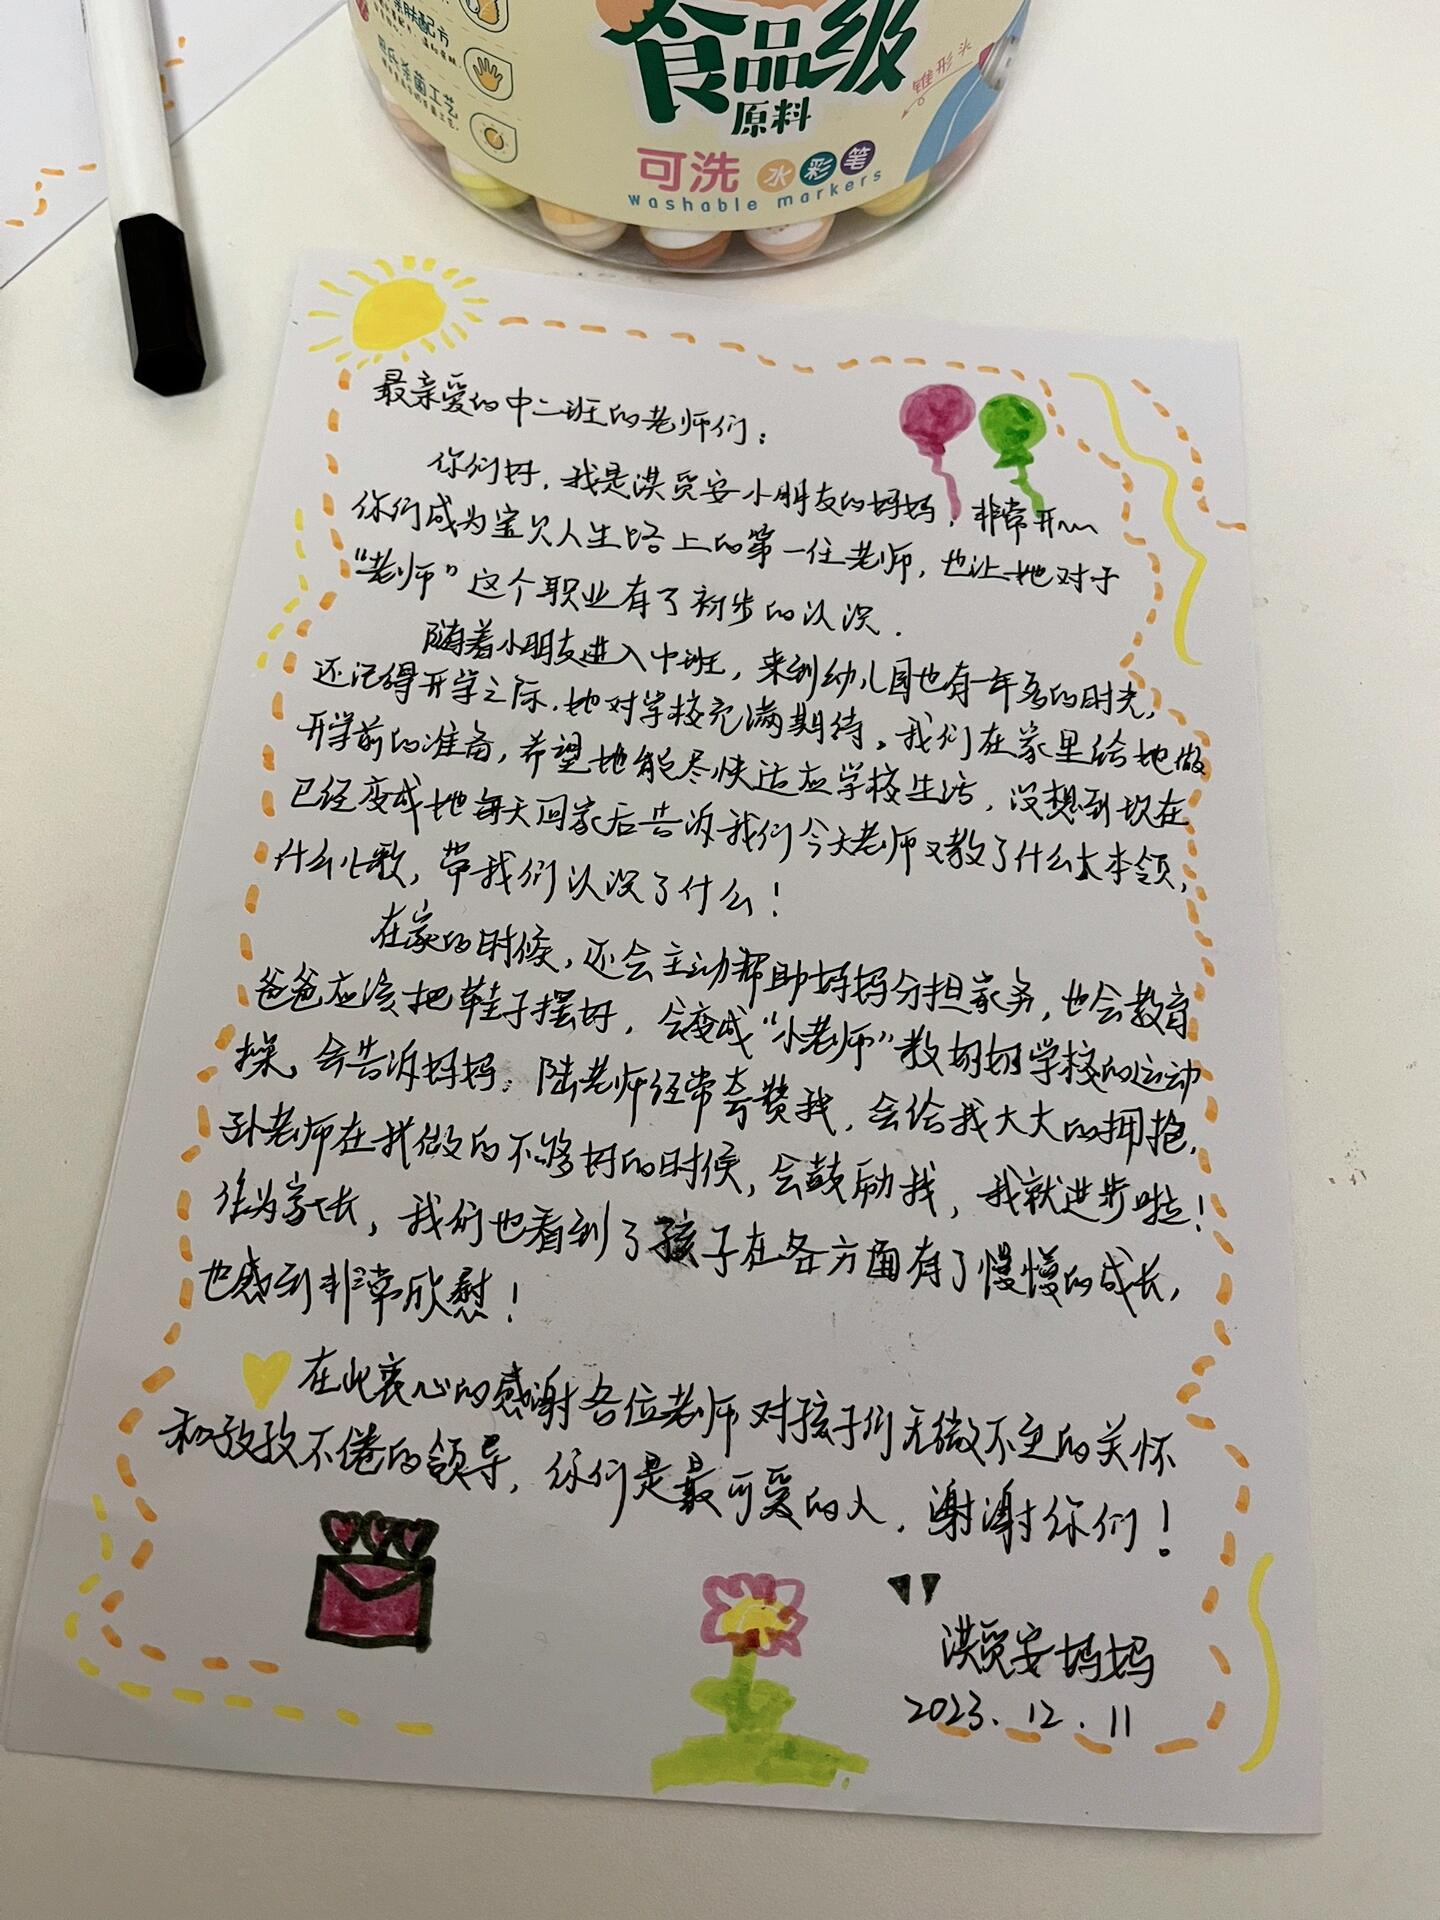 食品级
原料
可洗 水彩笔
washable markers
锥形头
肤配方
杀菌工艺
最亲爱的中二班的老师们：
你们好，我是洪贸安小朋友的妈妈，非常开心
你们成为宝贝人生路上的第一任老师，也让她对于
“老师”这个职业有了初步的认识．
随着小朋友进入中班，来到幼儿园也有一年多的时光，
还记得开学之际，她对学校充满期待。我们在家里给她做
开学前的准备，希望她能尽快适应学校生活，没想到现在
已经变成她每天回家后告诉我们今天老师又教了什么大本领，
什么儿歌，带我们认识了什么！
在家的时候，还会主动帮助妈妈分担家务，也会教育
爸爸应该把鞋子摆好，会变成“小老师”教奶奶学校的运动
操，会告诉妈妈：陆老师经常夸赞我，会给我大大的拥抱，
孙老师在我做的不够好的时候，会鼓励我，我就进步啦！
作为家长，我们也看到了孩子在各方面有了慢慢的成长，
也感到非常欣慰！
在此衷心的感谢各位老师对孩子们无微不至的关怀
和孜孜不倦的领导，你们是最可爱的人，谢谢你们！
洪贸安妈妈
2023．12．11